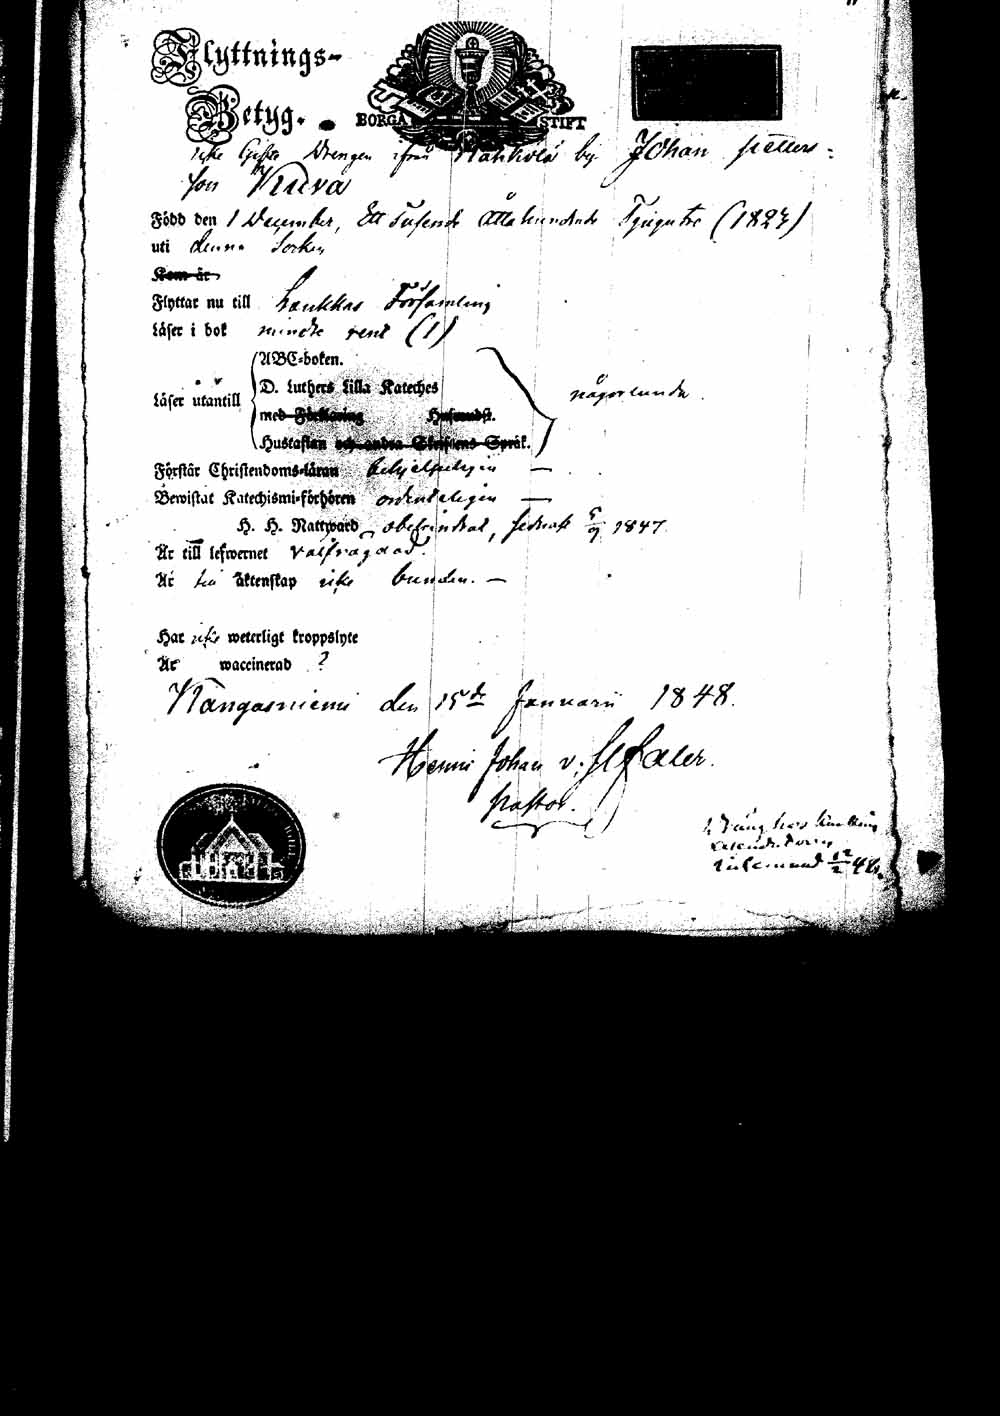 Flyttnings-
Betyg.
BORGÅ STIFT
icke Gifte Drengen ifrån by Johan Petters-
son Kuva
Född den 1 December, Ett Tusende Åttahundrade Tjugutre (1823)
uti denna Socken
Kom år
Flyttar nu till Laukkas Församling
Läser i bok mindre rent (1)
ABC-boken.
D. Luthers Lilla Kateches
Läser utantill någorlunda
med Förklaring Husandst.
Hustaflan och andra Skriftens Språk.
Förstår Christendoms-läran behjelpeligen —
Bewistat Katechismi-förhören ordenteligen —
H. H. Nattward obehindrat, sednast 5/9 1847
Är till lefwernet välfrägdad.
Är till äktenskap icke bunden. —
Har icke weterligt kroppslyte
Är waccinerad ?
Kangasniemi den 15de Januarii 1848.
Henric Johan v:
Pastor.
12/2 48.